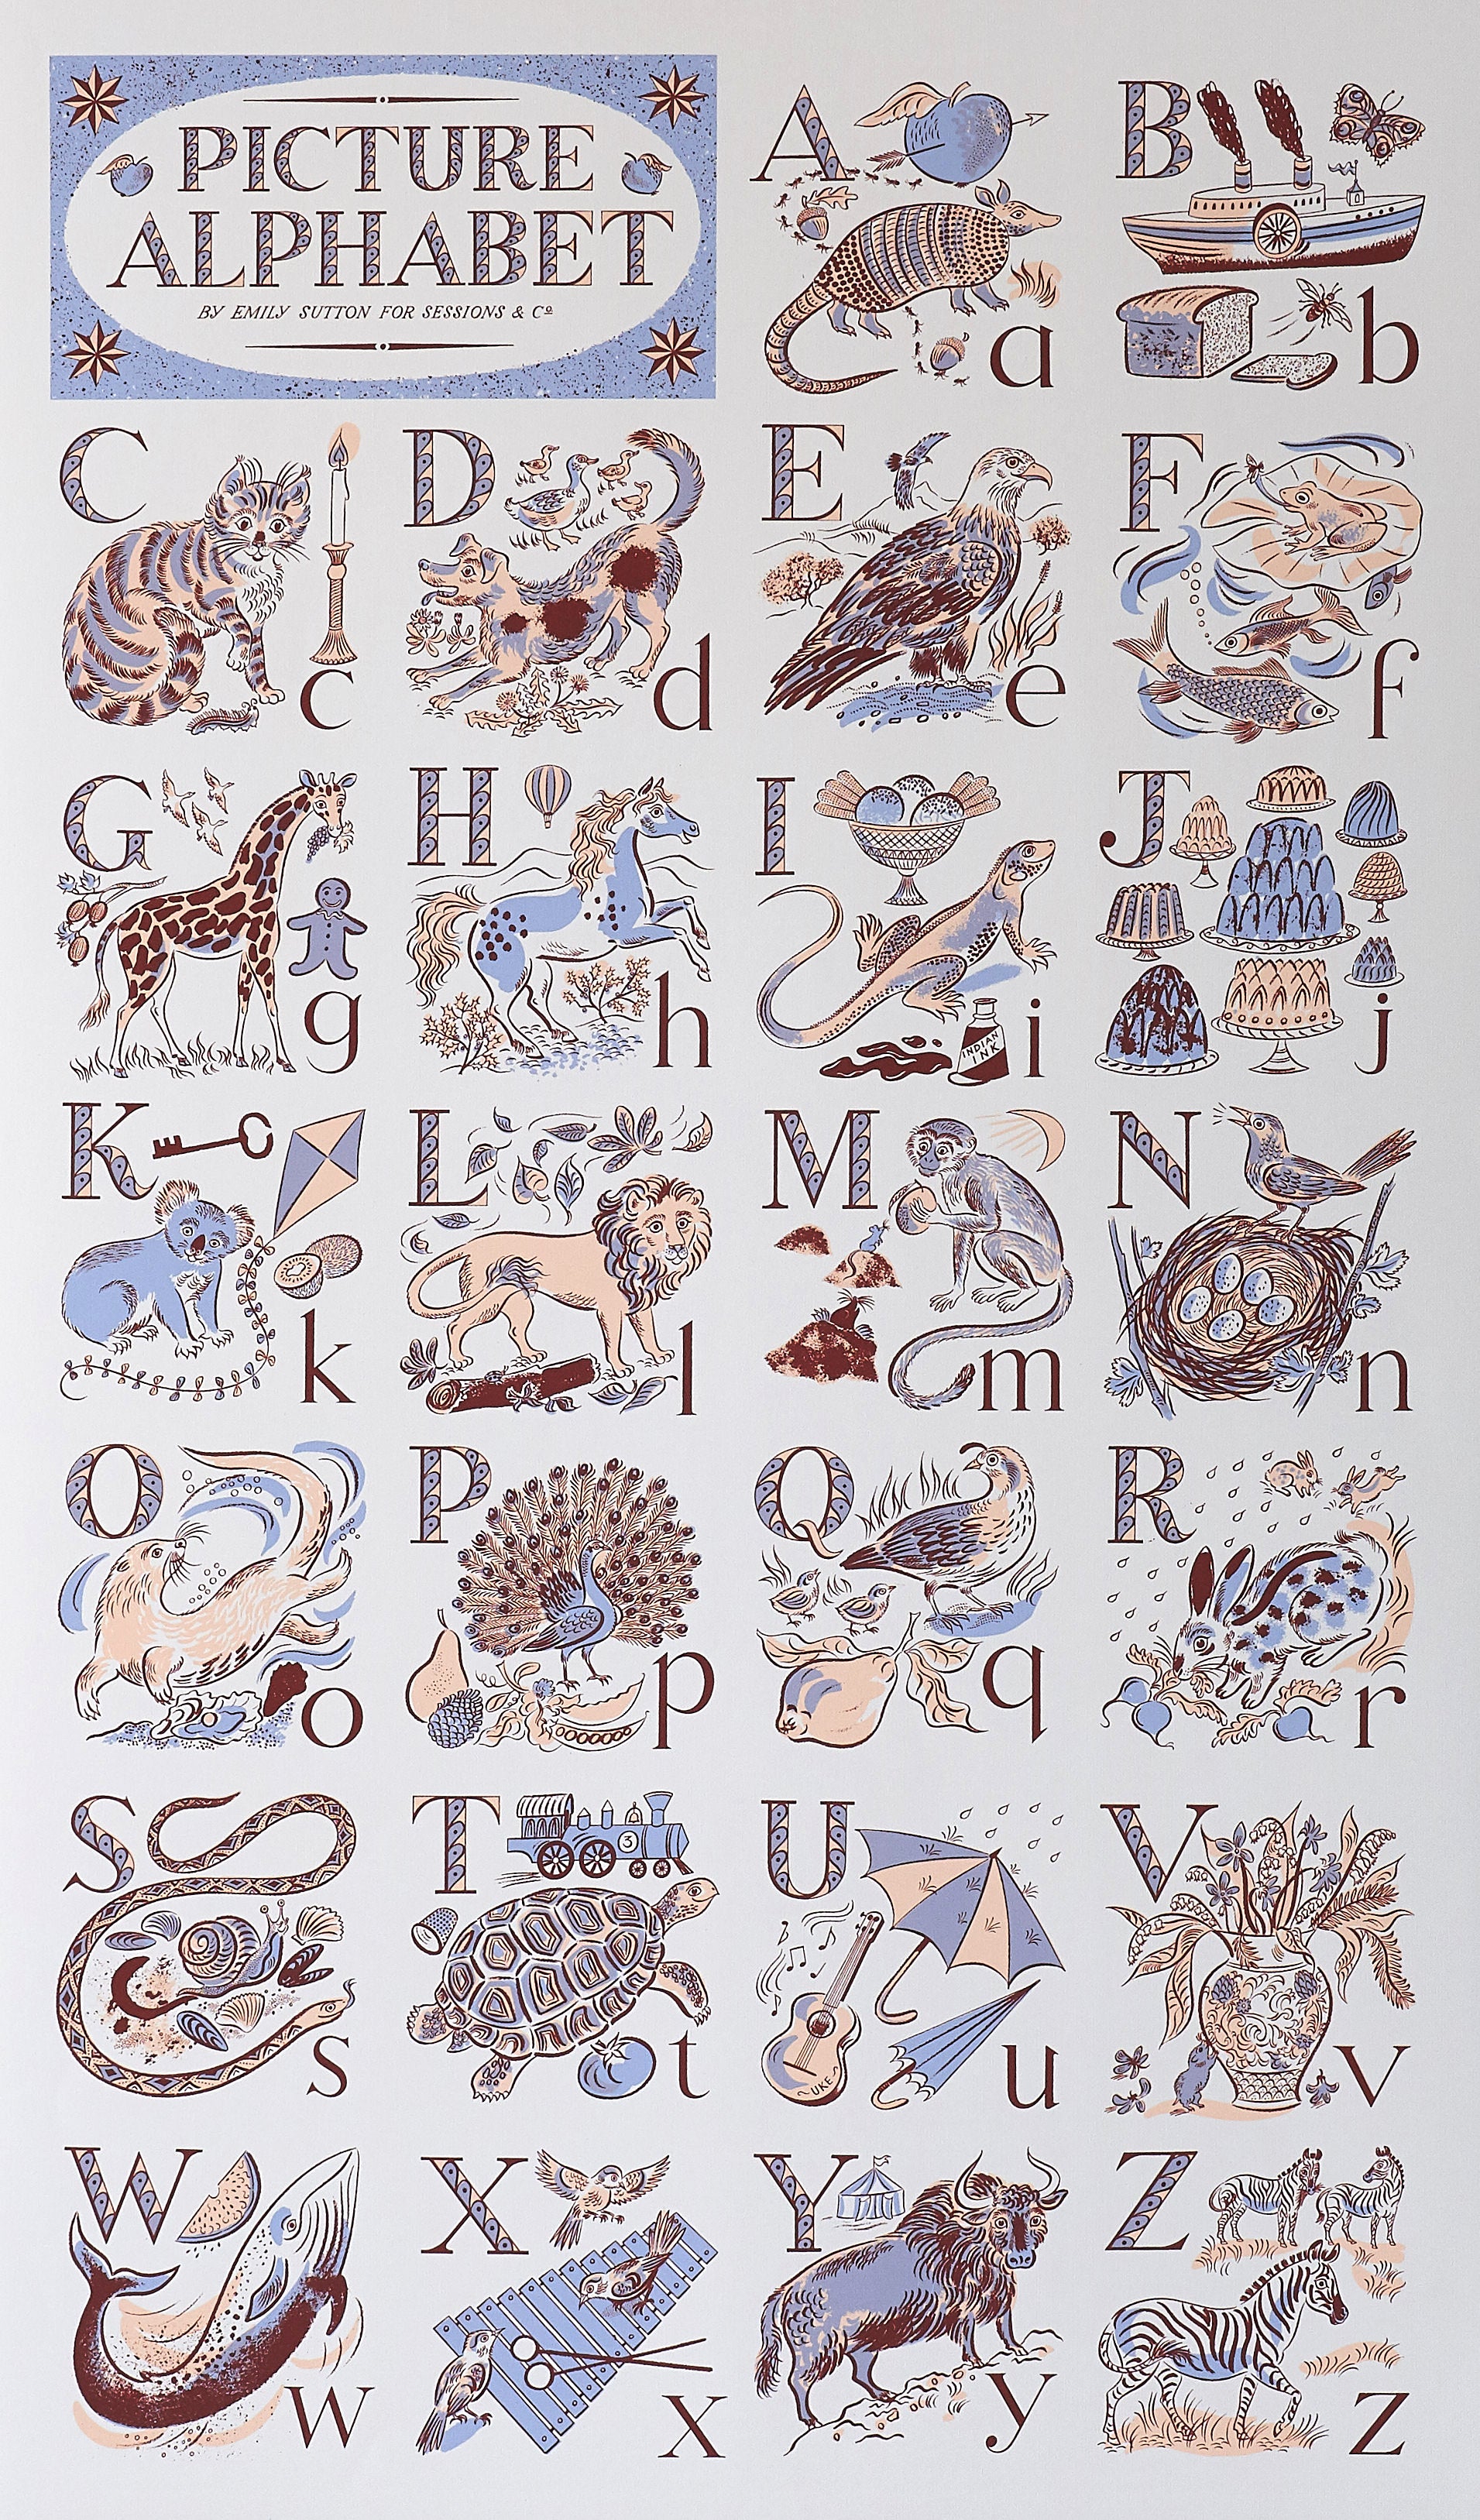 PICTURE
ALPHABET
BY EMILY SUTTON FOR SESSIONS & Cº
A a
B b
C c
D d
E e
F f
G g
H h
I i
INDIAN
INK
J j
K k
L l
M m
N n
O o
P p
Q q
R r
S s
T t
3
U u
UKE
V v
W w
X x
Y y
Z z